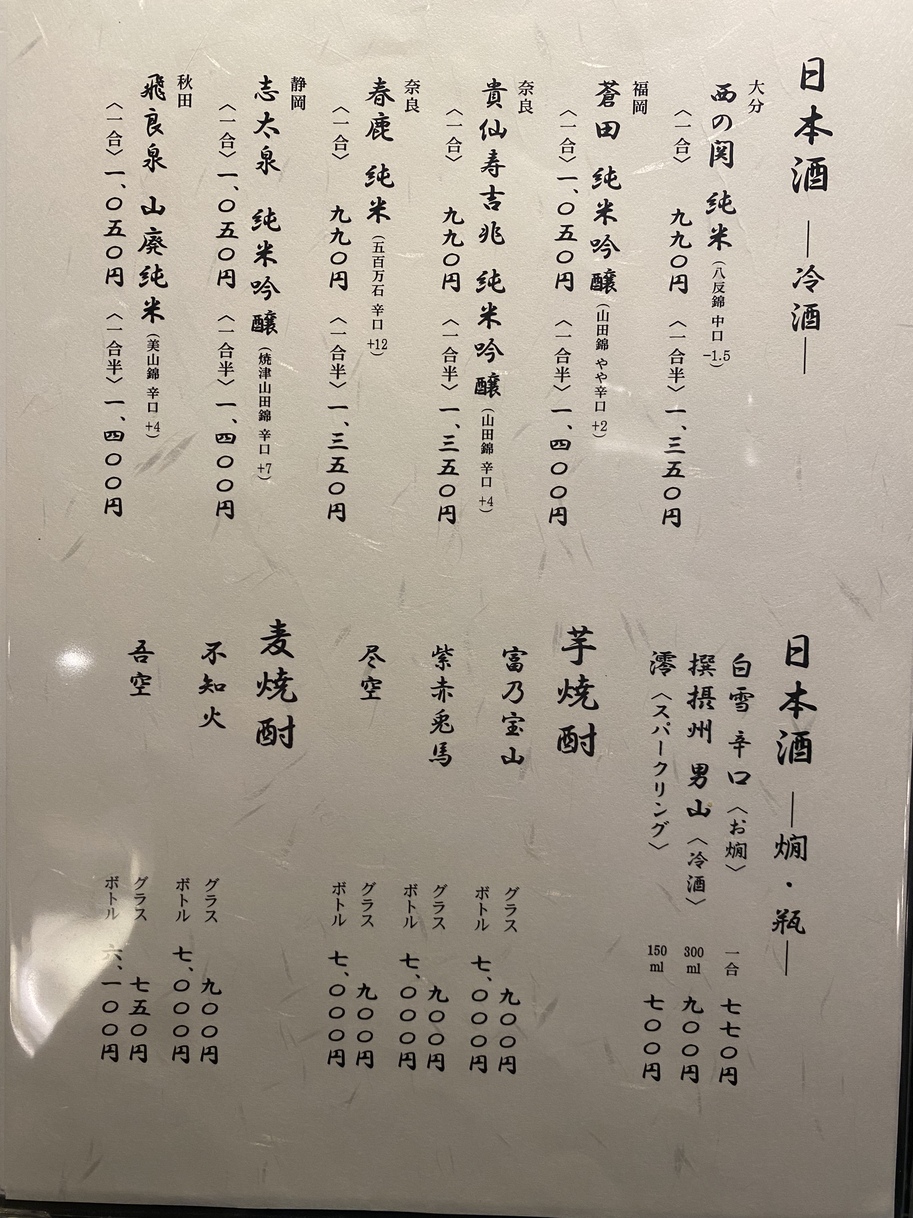 日本酒 ―冷酒―
大分
西の関 純米（八反錦 中口 -1.5）
〈一合〉九九〇円 〈一合半〉一、三五〇円
福岡
蒼田 純米吟醸（山田錦 やや辛口 +2）
〈一合〉一、〇五〇円 〈一合半〉一、四〇〇円
奈良
貴仙寿吉兆 純米吟醸（山田錦 辛口 +4）
〈一合〉九九〇円 〈一合半〉一、三五〇円
奈良
春鹿 純米（五百万石 辛口 +12）
〈一合〉九九〇円 〈一合半〉一、三五〇円
静岡
志太泉 純米吟醸（焼津山田錦 辛口 +7）
〈一合〉一、〇五〇円 〈一合半〉一、四〇〇円
秋田
飛良泉 山廃純米（美山錦 辛口 +4）
〈一合〉一、〇五〇円 〈一合半〉一、四〇〇円
日本酒 ―燗・瓶―
白雪 辛口〈お燗〉 一合 七七〇円
撰摂州 男山〈冷酒〉 300ml 九〇〇円
澪〈スパークリング〉 150ml 七〇〇円
芋焼酎
富乃宝山 グラス 九〇〇円
ボトル 七、〇〇〇円
紫赤兎馬 グラス 九〇〇円
ボトル 七、〇〇〇円
尽空 グラス 九〇〇円
ボトル 七、〇〇〇円
麦焼酎
不知火 グラス 九〇〇円
ボトル 七、〇〇〇円
吾空 グラス 七五〇円
ボトル 六、一〇〇円